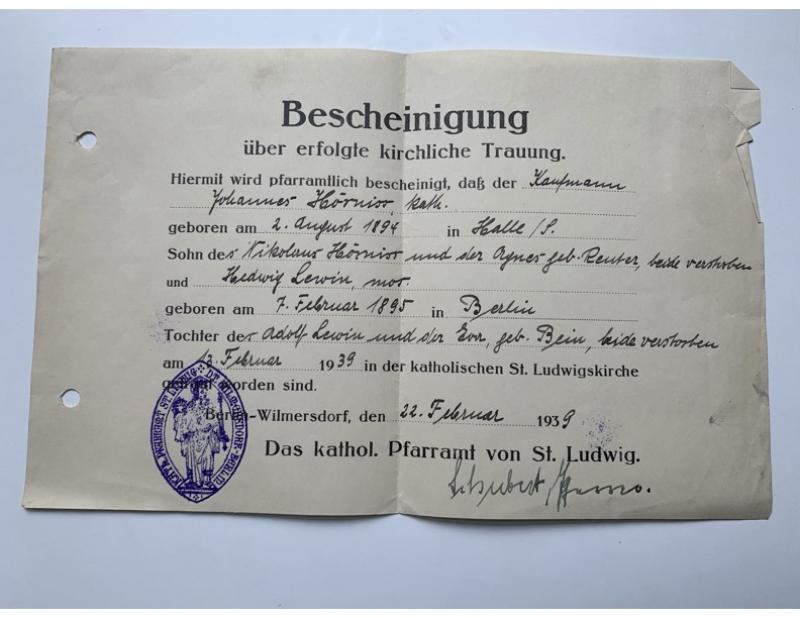 Bescheinigung
über erfolgte kirchliche Trauung.
Hiermit wird pfarramtlich bescheinigt, daß der Kaufmann
Johannes Hörniss, kath.
geboren am 2. August 1894 in Halle /S.
Sohn des Nikolaus Hörniss und der Agnes geb. Reuter, beide verstorben
und Hedwig Lewin, mos.
geboren am 7. Februar 1895 in Berlin
Tochter des Adolf Lewin und der Eva, geb. Bein, beide verstorben
am 13. Februar 1939 in der katholischen St. Ludwigskirche
getraut worden sind.
Berlin-Wilmersdorf, den 22. Februar 1939
Das kathol. Pfarramt von St. Ludwig.
Schubert,